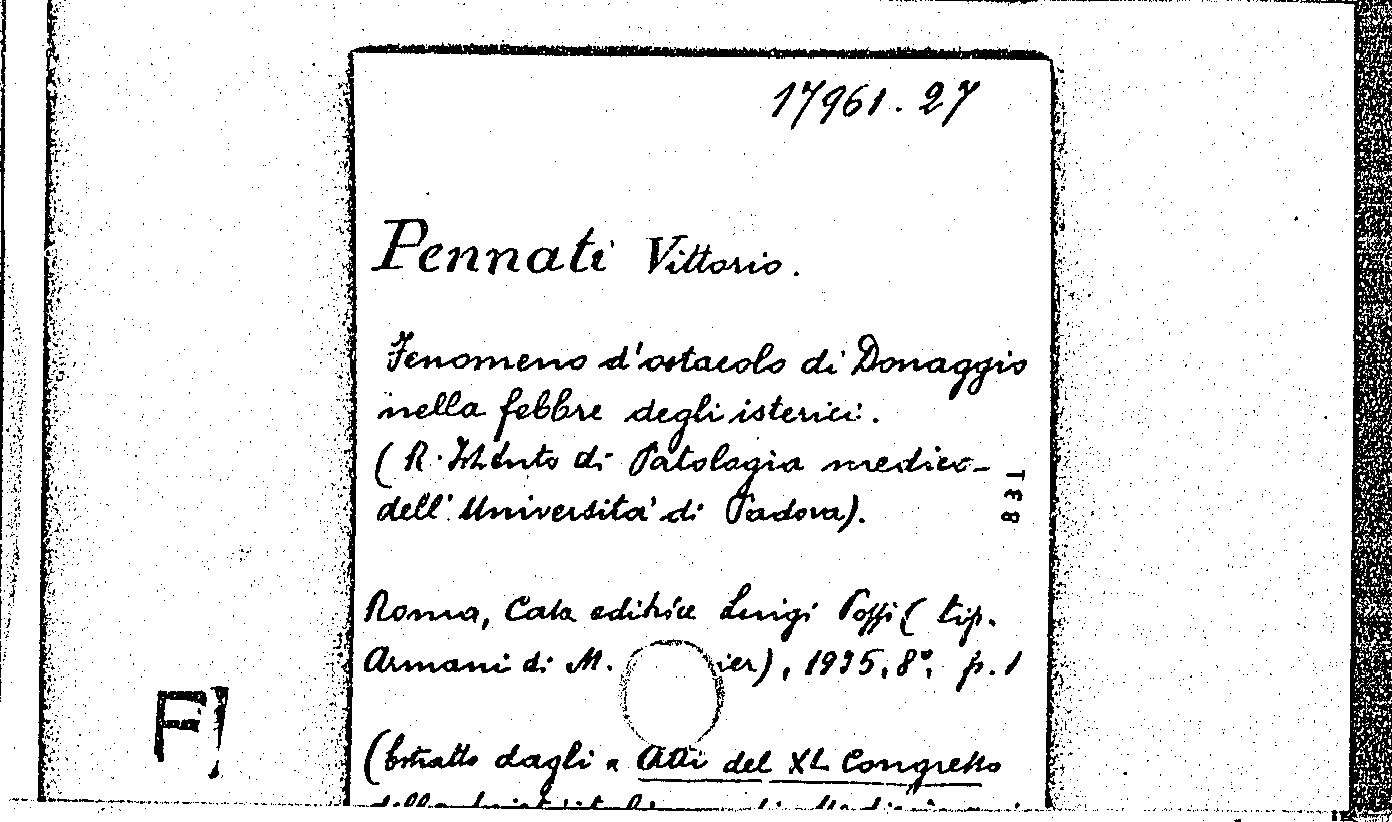 17961.27
Pennati Vittorio.
Fenomeno d'ostacolo di Donaggio
nella febbre degli isterici.
(R. Istituto di Patologia medica
dell'Università di Padova).
T38
Roma, Casa editrice Luigi Pozzi (tip.
Armani di M. ier), 1935, 8°, p. 1
(Estratto dagli « Atti del XL Congresso
F!